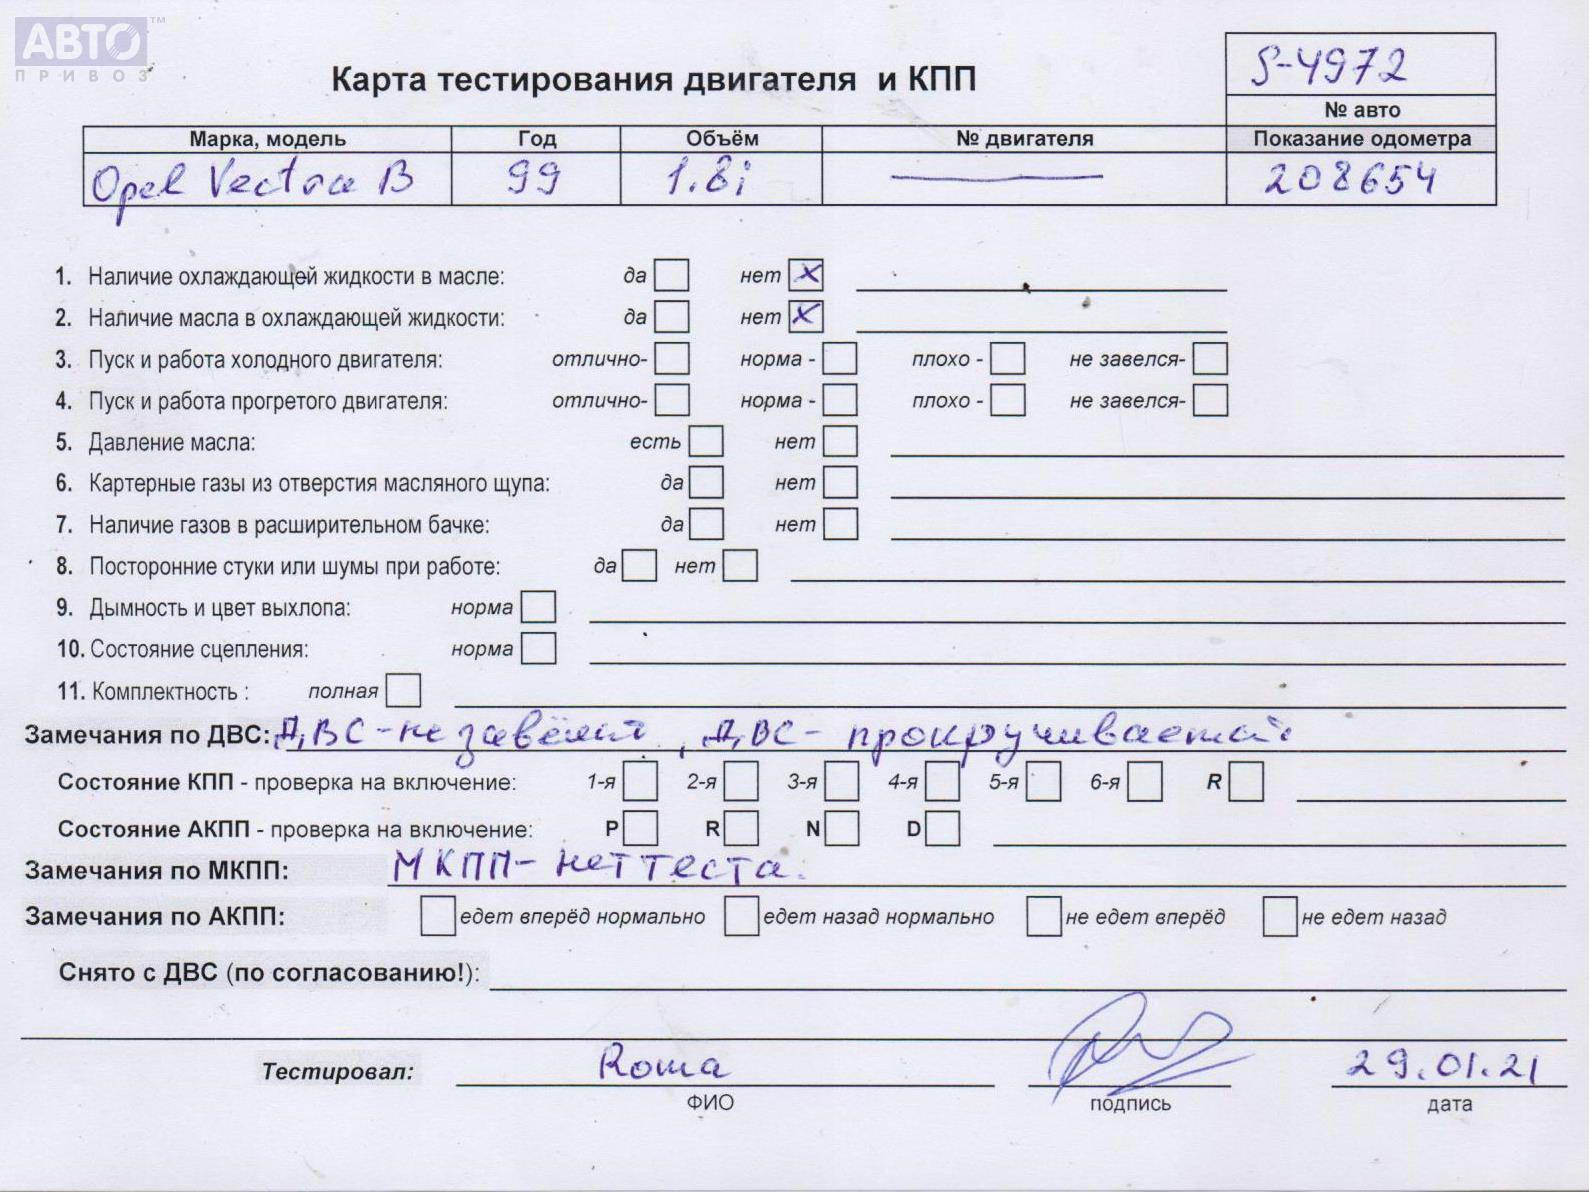 АВТО™
ПРИВОЗ
Карта тестирования двигателя и КПП
S-4972
№ авто
Марка, модель Год Объём № двигателя Показание одометра
Opel Vectra B 99 1.8i — 208654
1. Наличие охлаждающей жидкости в масле: да нет x
2. Наличие масла в охлаждающей жидкости: да нет x
3. Пуск и работа холодного двигателя: отлично- норма - плохо - не завелся-
4. Пуск и работа прогретого двигателя: отлично- норма - плохо - не завелся-
5. Давление масла: есть нет
6. Картерные газы из отверстия масляного щупа: да нет
7. Наличие газов в расширительном бачке: да нет
8. Посторонние стуки или шумы при работе: да нет
9. Дымность и цвет выхлопа: норма
10. Состояние сцепления: норма
11. Комплектность : полная
Замечания по ДВС: ДВС-не , ДВС- прокручивается
Состояние КПП - проверка на включение: 1-я 2-я 3-я 4-я 5-я 6-я R
Состояние АКПП - проверка на включение: P R N D
Замечания по МКПП: МКПП- нет теста.
Замечания по АКПП: едет вперёд нормально едет назад нормально не едет вперёд не едет назад
Снято с ДВС (по согласованию!):
Тестировал: Roma 29.01.21
ФИО подпись дата